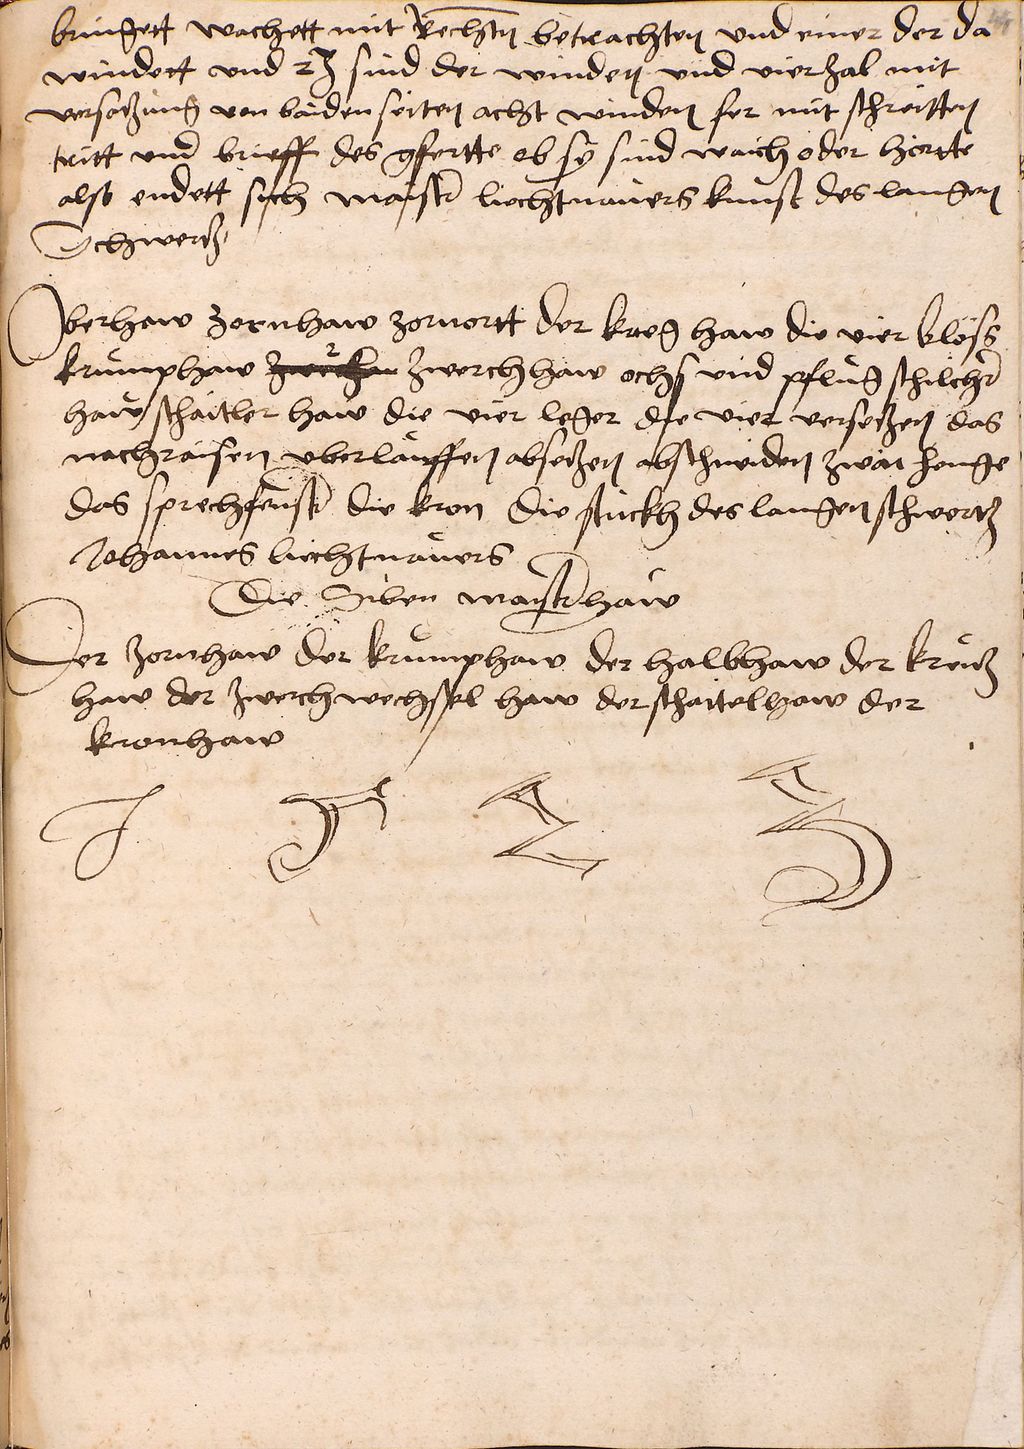 bringett wachett mit Rechten betrachten und einer der da
windett und 23 sind der winden und vierzal mit
versetzung von baiden seiten acht winden ler mit schreitten
tritt und brieff des gfertte ob sÿ sind waich oder hörtte
also endett sich maistr liechtnauers kunst des langen
Schwertz
Oberhaw zornhaw zornortt der krieg haw die vier blöss
krumphaw zwerchhaw ochs und pflug schilchr
haw schaitler haw die vier leger die vier versetzen das
nachraisen uberlauffen absetzen abschneiden zwai henge
das sprechfenstr die kron die stückh des langen schwertz
Johannes liechtnauers
Die Siben maistrhaw
Der zornhaw der krumphaw der halbhaw der kreütz
haw der zwerch wechssel haw der schaitelhaw der
kronhaw